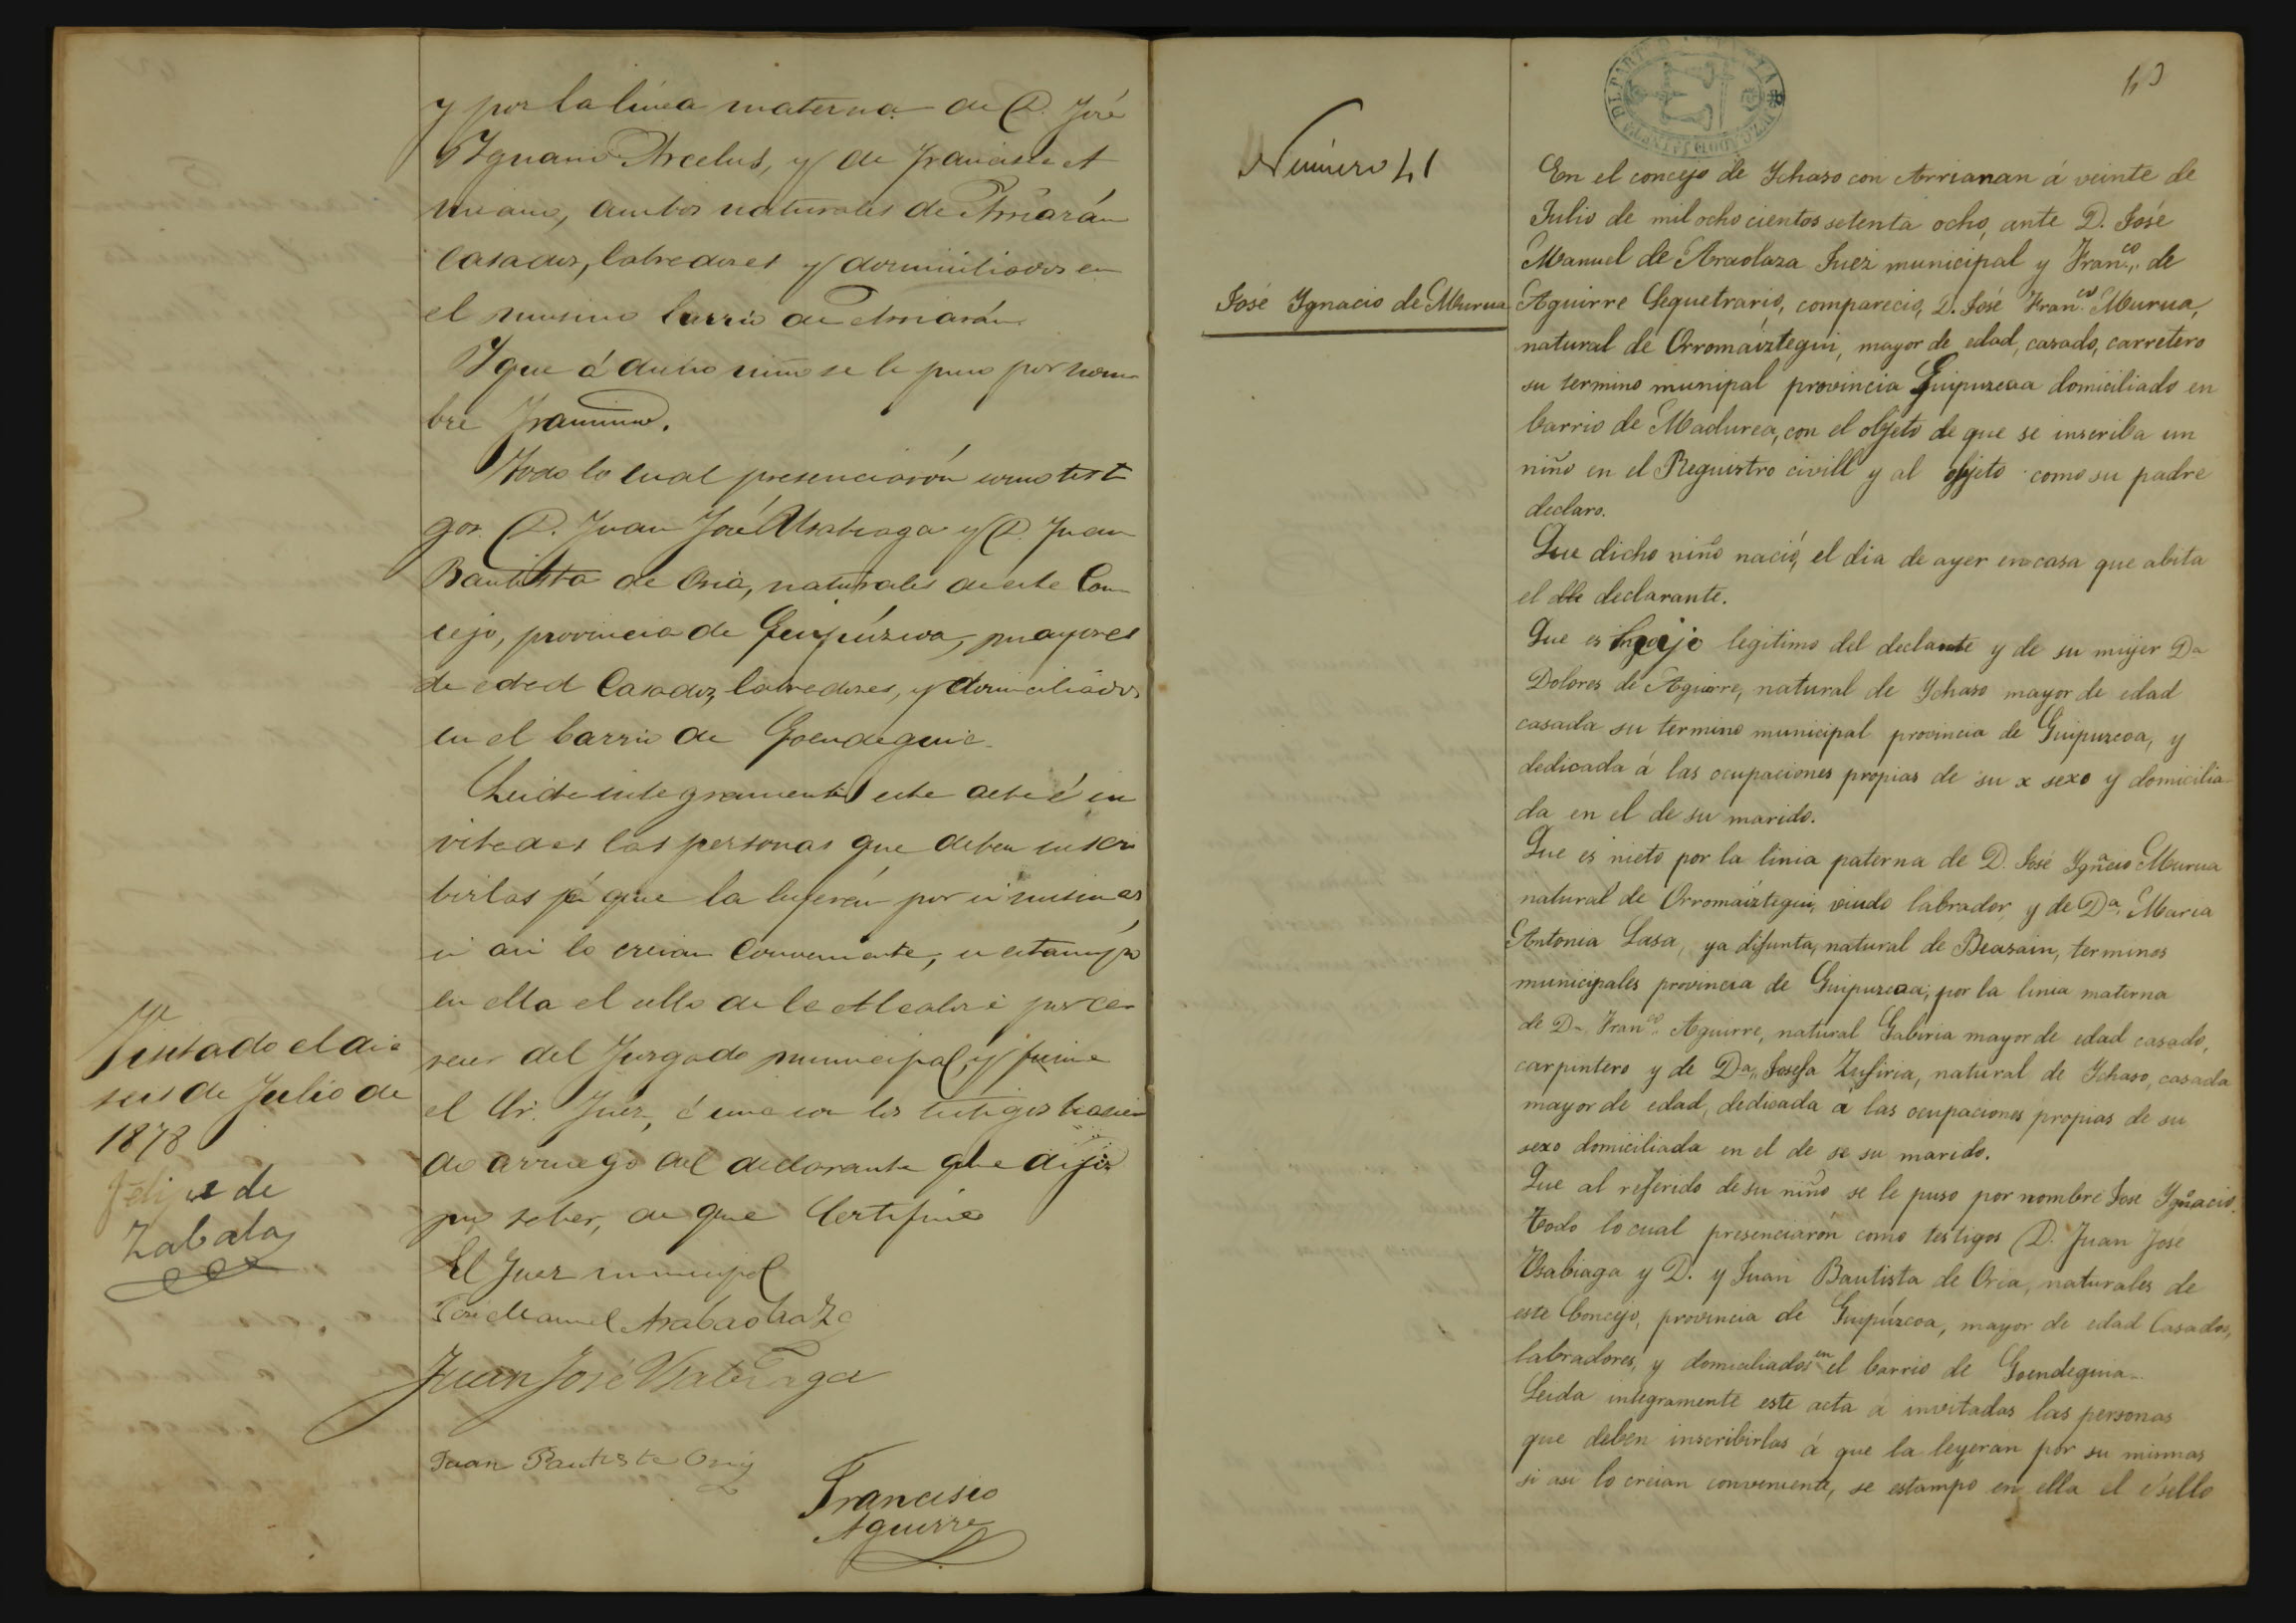 y por la línea materna de D. José
Ygnacio Arcelus, y de Francisca A
ambos naturales de Arriarán
Casados, labradores y domiciliados en
el mismo barrio de Arriarán
Y que á dicho niño se le puso por nom
bre
Todo lo cual presenciarón como testi
gos D. Juan José Usabiaga y D. Juan
Bautista de Oria, naturales de este Con
cejo, provincia de Guipúzcoa, mayores
de edad Casados, labradores, y domiciliados
en el barrio de Goendeguia
Leida integramente este acta é in
vitadas las personas que deben suscri
birlas á que la leyerán por si mismas
si asi lo creian conveniente, se estampó
en ella el sello de la Alcaldia por ca
recer del Juzgado municipal, y firma
el Sr. Juez, é una con los testigos hacien
do arruego del declarante que dijo
no saber, de que Certifico
El Juez municipal
José Manuel Arabaolaza
Juan José Usabiaga
Juan Bautista Oria
Francisco
Aguirre
Visitado el dia
seis de Julio de
1878
Felipe de
Zabala
43
Número 41
José Ygnacio de Murua
En el concejo de Ychaso con Arrianan á veinte de
Julio de mil ochocientos setenta ocho, ante D. José
Manuel de Araolaza Juez municipal y Franco de
Aguirre Sequetrario, comparecio, D. José Franco Murua,
natural de Orromaiztegui, mayor de edad, casado, carretero
su termino munipal provincia Guipuzcoa domiciliado en
barrio de Madurea, con el objeto de que se inscriba un
niño en el Reguistro civill y al objeto como su padre
declaro.
Que dicho niño nació, el dia de ayer en casa que abita
el dle declarante.
Que es hijo legitimo del declante y de su mujer Da
Dolores de Aguirre, natural de Ychaso mayor de edad
casada su termino municipal provincia de Guipuzcoa, y
dedicada á las ocupaciones propias de su x sexo y domicilia
da en el de su marido.
Que es nieto por la linia paterna de D. José Ygnacio Murua
natural de Orromaiztegui, viudo labrador y de Da Maria
Antonia Lasa, ya difunta, natural de Beasain, terminos
municipales provincia de Guipuzcoa; por la linea materna
de D. Franco Aguirre, natural Gabiria mayor de edad casado,
carpintero y de Da Josefa Zufiria, natural de Ychaso, casada
mayor de edad, dedicada á las ocupaciones propias de su
sexo domiciliada en el de se su marido.
Que al referido de su niño se le puso por nombre José Ygnacio.
Todo lo cual presenciarón como testigos D. Juan José
Usabiaga y D. y Juan Bautista de Oria, naturales de
este Concejo, provincia de Guipúzcoa, mayor de edad Casados,
labradores, y domiciliados en el barrio de Goendeguia
Leida integramente este acta á invitadas las personas
que deben inscribirlas á que la leyeran por su mismas
si asi lo creian conveniente, se estampo en ella el sello